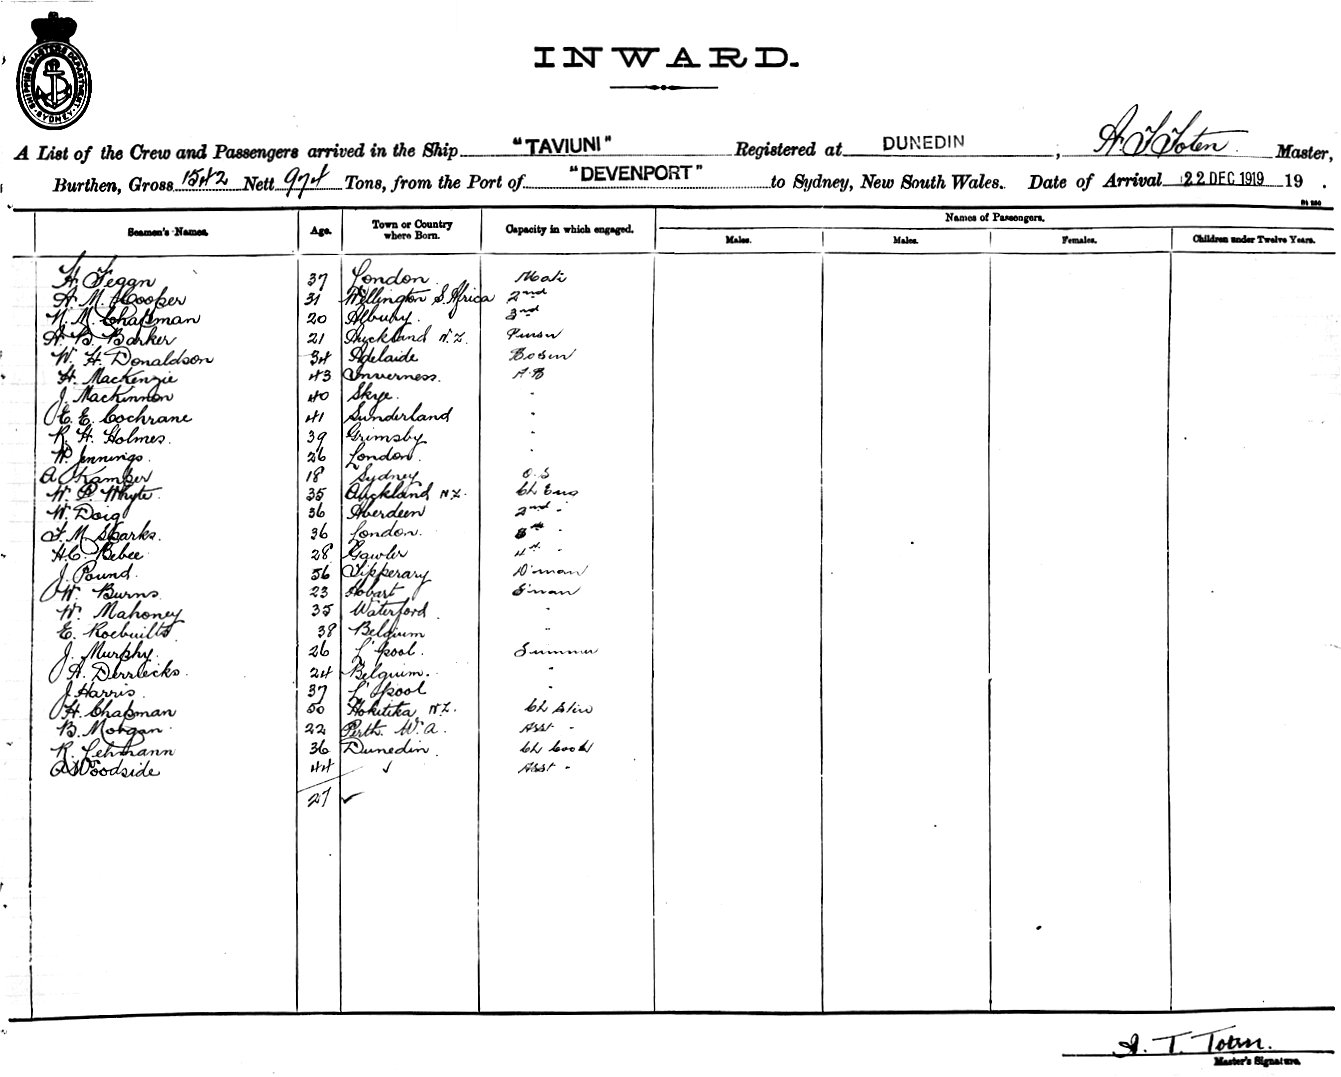 SHIPPING MASTERS DEPARTMENT SYDNEY
INWARD.
A List of the Crew and Passengers arrived in the Ship "TAVIUNI" Registered at DUNEDIN, A. T. Toten Master,
Burthen, Gross 1542 Nett 974 Tons, from the Port of "DEVENPORT" to Sydney, New South Wales. Date of Arrival 22 DEC 1919 19 .
Seamen's Names. Age. Town or Country where Born. Capacity in which engaged. Names of Passengers.
Males. Males. Females. Children under Twelve Years.
H. Fegan 37 London Mate
A. M. Cooper 31 Wellington S. Africa 2nd
N. M. Chapman 20 Albury. 3rd
A. B. Barker 21 Auckland N.Z. Purser
W. H. Donaldson 34 Adelaide Bosun
H. Mackenzie 43 Inverness. A.B
J. Mackinnon 40 Skye. "
E. E. Cochrane 41 Sunderland "
R. H. Holmes. 39 Grimsby "
W. Jennings. 26 London. "
A. Kamper 18 Sydney O.S
W. P. Whyte. 35 Auckland N.Z. Ch Eng
W. Doig 36 Aberdeen 2nd "
F. M. Sparks. 36 London. 3rd "
H.C. Bebee 28 Gawler 4th "
J. Pound. 56 Tipperary D'man
W. Burns 23 Hobart F'man
W. Mahoney 35 Waterford "
E. 38 Belgium "
J. Murphy. 26 L'pool.
A. Derrecks. 24 Belguim. "
J Harris. 37 L'pool "
H. Chapman 50 Hokitika N.Z. Ch Stew
B. Morgan. 22 Perth. W.A. Asst "
R. Lehmann 36 Dunedin. Ch Cook
A Woodside 44 ✓ Asst "
27 ✓
A. T. Toten.
Master's Signature.